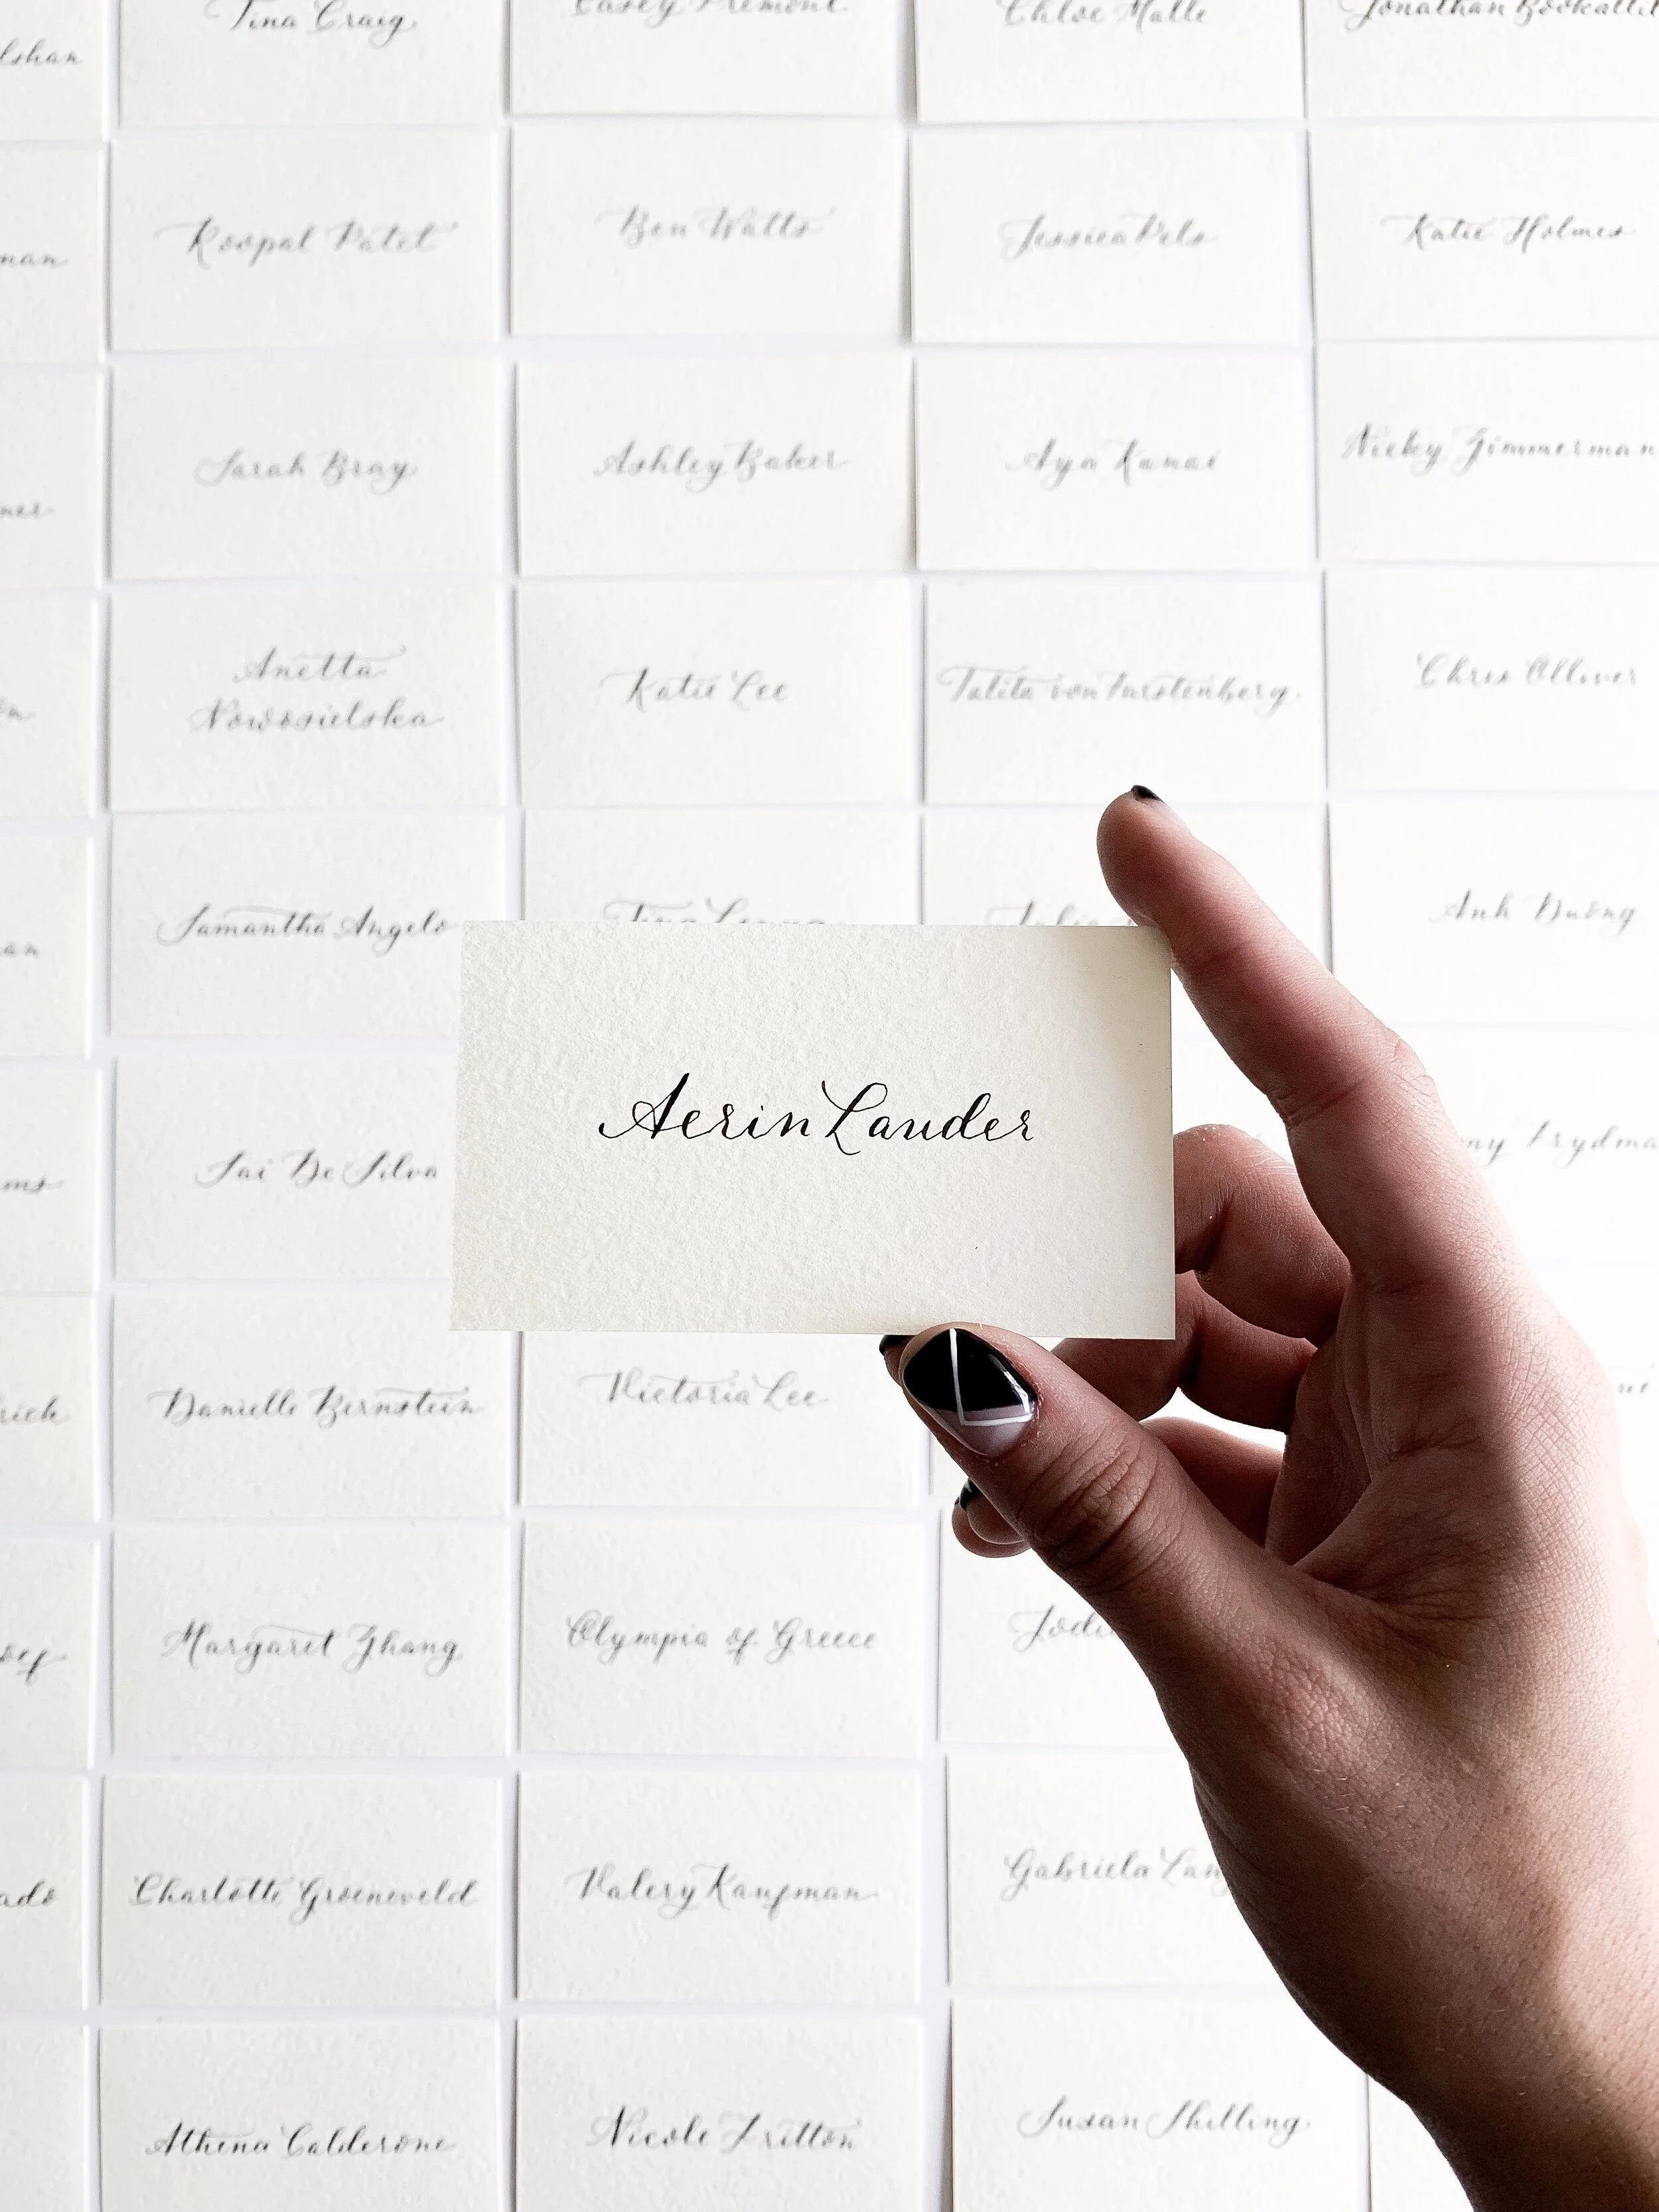 Tina Craig
Chloe Malle
Roopal Patel
Ben Watts
Jessica Pels
Katie Holmes
Sarah Bray
Ashley Baker
Aya Kanai
Nicky Zimmerman
Anetta
Nowosielska
Katie Lee
Talita von Furstenberg
Chris Olliver
Samantha Angelo
Anh Duong
Aerin Lauder
Sai De Silva
Danielle Bernstein
Victoria Lee
Margaret Zhang
Olympia of Greece
Charlotte Groeneveld
Valery Kaufman
Gabriela
Athena Calderone
Nicole Fritton
Susan Shilling